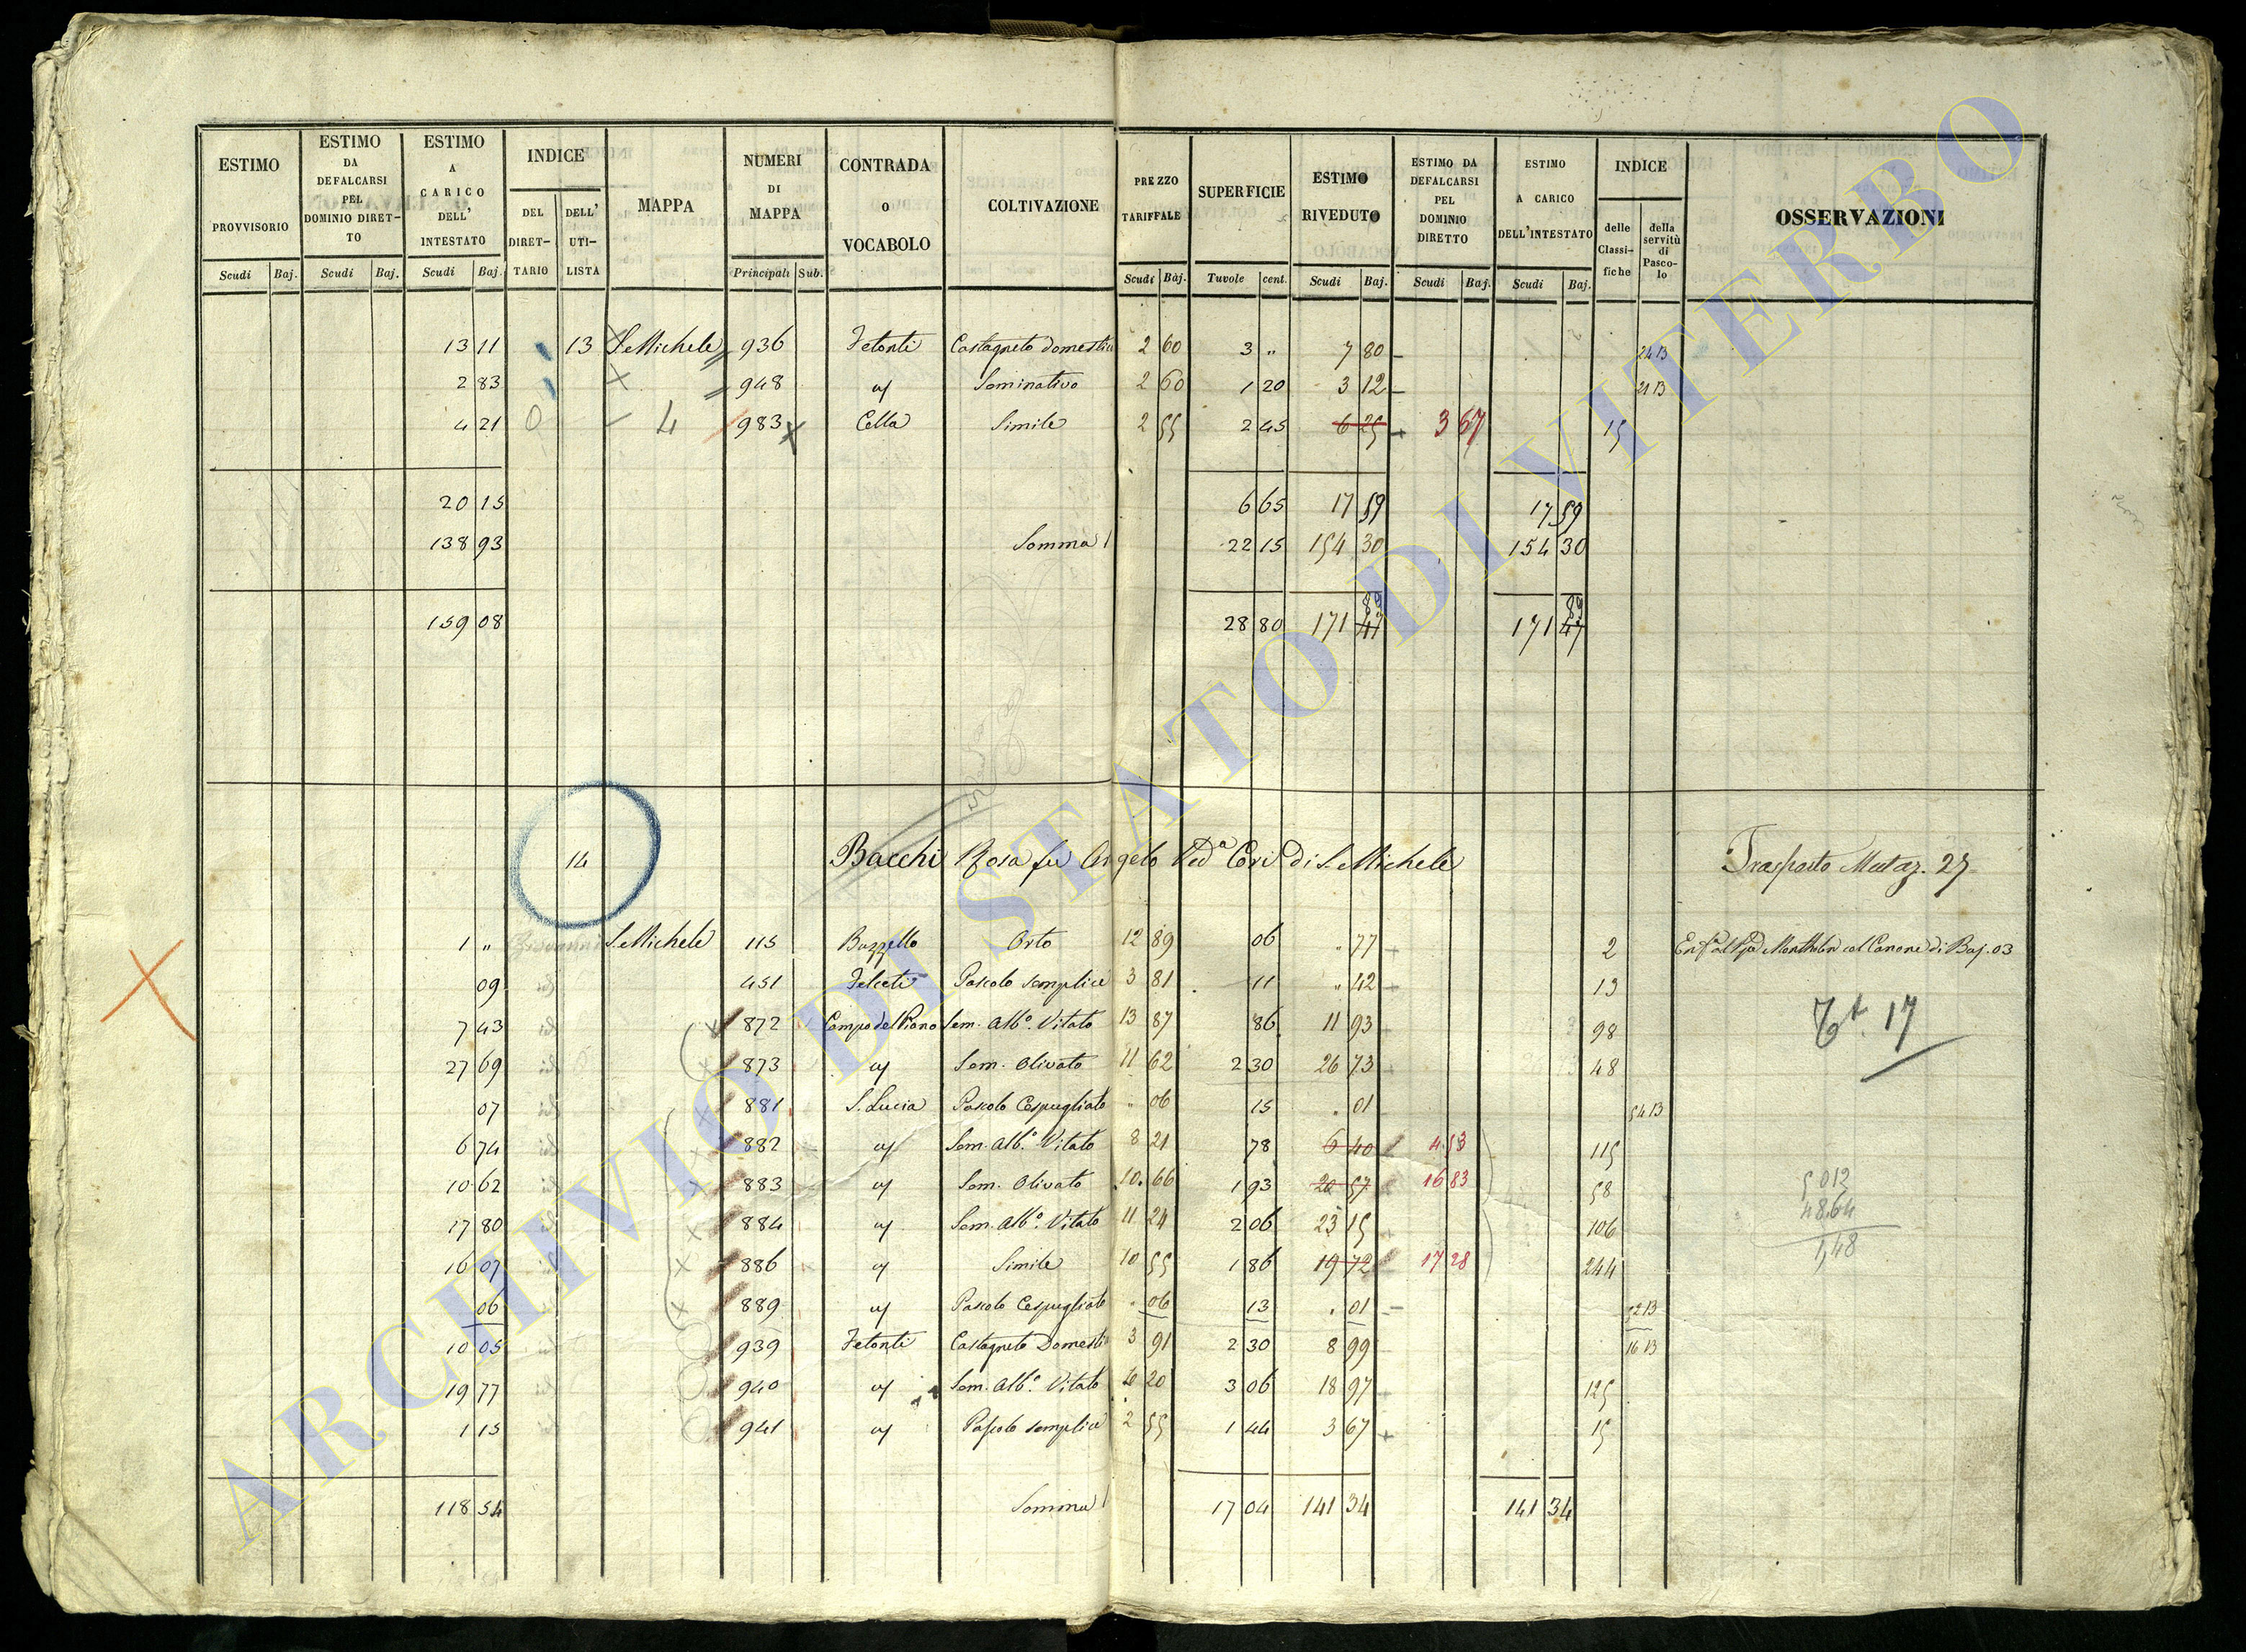 ESTIMO PROVVISORIO Scudi Baj.
ESTIMO DA DEFALCARSI PEL DOMINIO DIRET- TO Scudi Baj.
ESTIMO A CARICO DELL' INTESTATO Scudi Baj.
INDICE DEL DIRET- TARIO DELL' UTI- LISTA
MAPPA
NUMERI DI MAPPA Principali Sub.
CONTRADA O VOCABOLO
COLTIVAZIONE
PREZZO TARIFFALE Scudi Baj.
SUPERFICIE Tavole cent.
ESTIMO RIVEDUTO Scudi Baj.
ESTIMO DA DEFALCARSI PEL DOMINIO DIRETTO Scudi Baj.
ESTIMO A CARICO DELL'INTESTATO Scudi Baj.
INDICE delle Classi- fiche della servitù di Pasco- lo
OSSERVAZIONI
13 11 13 S. Michele 936 Fetonti Castagneto domestico 2 60 3 " 7 80 24 13
2 83 948 Seminativo 2 60 1 20 3 12 21 13
4 21 983 Cella Simile 2 55 2 45 6 25 3 67 15
20 15 6 65 17 59 17 59
138 93 Somma 22 15 154 30 154 30
89 89
159 08 28 80 171 47 171 47
14 Bacchi Rosa fu Angelo Ved.a Cori di S. Michele Trasporto Mutaz. 27
1 " S. Michele 115 Bozzello Orto 12 89 06 " 77 2 col Canone di Baj. 03
09 451 Felceti Pascolo semplice 3 81 11 " 42 13
7 43 872 Campo del Piano Sem. Alb.o Vitato 13 87 86 11 93 98 17
27 69 873 Sem. Olivato 11 62 2 30 26 73 48
07 881 S. Lucia Pascolo Cespugliato " 06 15 . 01 54 13
6 74 882 Sem. Alb.o Vitato 8 21 78 6 40 4 53 115
10 62 883 Sem. Olivato 10 66 1 93 20 57 16 83 58 5012
48,64
17 80 884 Sem. Alb.o Vitato 11 24 2 06 23 15 106
1,48
16 07 886 Simile 10 55 1 86 19 72 17 28 244
06 889 Pascolo Cespugliato . 06 13 . 01 13
10 05 939 Fetonti Castagneto Domestico 3 91 2 30 8 99 16 13
19 77 940 Sem. Alb.o Vitato 6 20 3 06 18 97 125
1 15 941 Pascolo semplice 2 55 1 44 3 67 15
118 54 Somma 17 04 141 34 141 34
ARCHIVIO DI STATO DI VITERBO